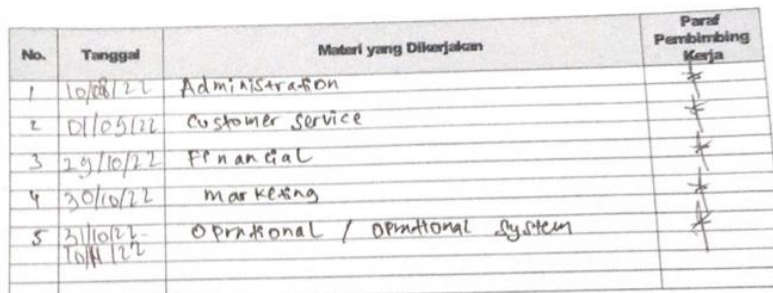 No. Tanggal Materi yang Dikerjakan Paraf Pembimbing Kerja
1 10/08/22 Administration
2 01/09/22 Customer Service
3 29/10/22 Financial
4 30/10/22 marketing
5 31/10/22- Oprational / Oprational System
10/11/22